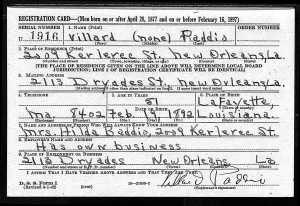 REGISTRATION CARD—(Men born on or after April 28, 1877 and on or before February 16, 1897)
SERIAL NUMBER 1. NAME (Print) ORDER NUMBER
U 1916 Willard (none) Paddio
2. PLACE OF RESIDENCE (Print)
2059 Kerlerec St. New Orleans, La.
(THE PLACE OF RESIDENCE GIVEN ON THE LINE ABOVE WILL DETERMINE LOCAL BOARD
JURISDICTION; LINE 2 OF REGISTRATION CERTIFICATE WILL BE IDENTICAL)
3. MAILING ADDRESS
2113 Dryades St. New Orleans, La.
4. TELEPHONE
51 Lafayette,
Ma. 8402 Feb. 1892 Louisiana.
7. NAME AND ADDRESS OF PERSON WHO WILL ALWAYS KNOW YOUR ADDRESS
Mrs. Hilda Paddio, 2059 Kerlerec St.
8. EMPLOYER'S NAME AND ADDRESS
Has own business
9. PLACE OF EMPLOYMENT OR BUSINESS
2113 Dryades New Orleans La
I AFFIRM THAT I HAVE VERIFIED ABOVE ANSWERS AND THAT THEY ARE TRUE.
D. S. S. Form 1
Paddio